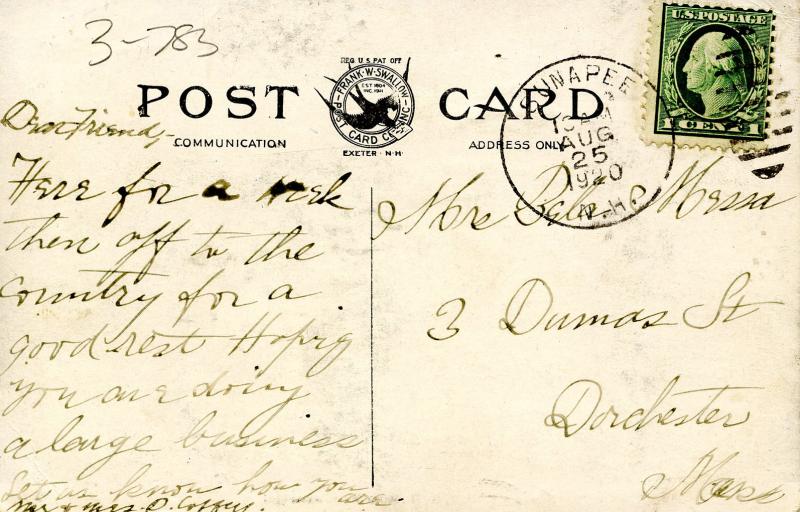 3-783
U.S. POSTAGE
1 CENTS 1
REG U.S. PAT OFF
FRANK·W·SWALLOW
EST 1904
INC. 1911
POST CARD CO. INC.
EXETER - N·H·
POST CARD
COMMUNICATION
ADDRESS ONLY
SUNAPEE
AUG
25
1920
N.H.
Dear Friend,-
Here for a week
then off to the
Country for a
good rest Hoping
you are doing
a large business
Let us know how you
are.
Mr & Mrs. D. Coffey.
Mrs Messa
3 Dumas St
Dorchester
Mass